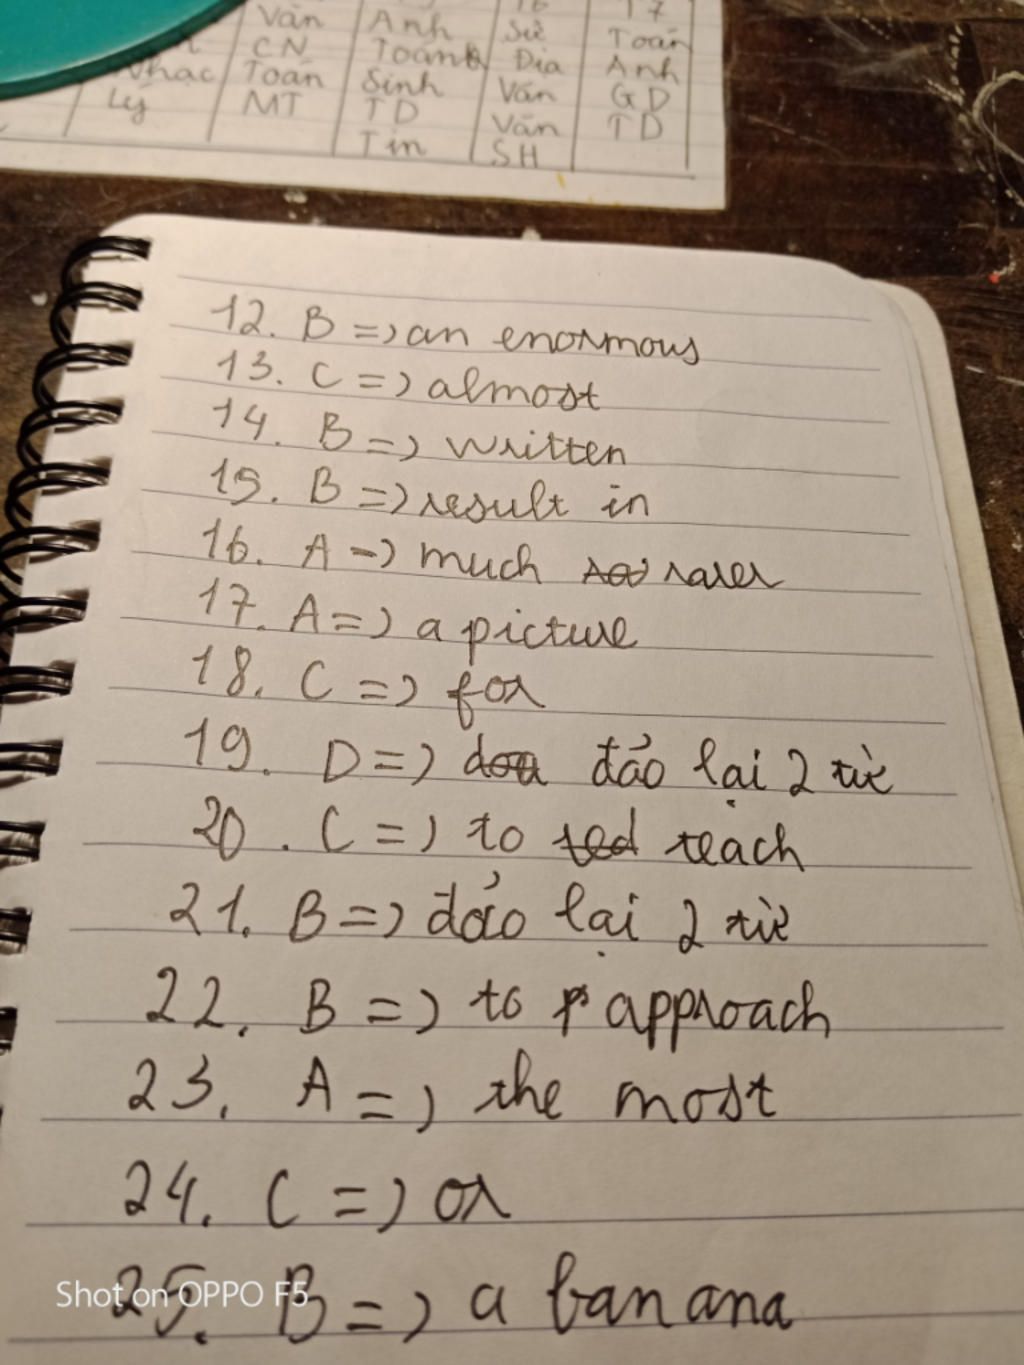 Văn Anh Sử Toán
CN Toán Địa Anh
Nhạc Toán Sinh Văn GD
Lý MT TD Văn TD
Tin SH
12. B => an enormous
13. C => almost
14. B => written
15. B => result in
16. A => much rarer
17. A => a picture
18. C => for
19. D => đảo lại 2 từ
20. C => to teach
21. B => đảo lại 2 từ
22. B => to approach
23. A => the most
24. C => or
25. B => a banana
Shot on OPPO F5